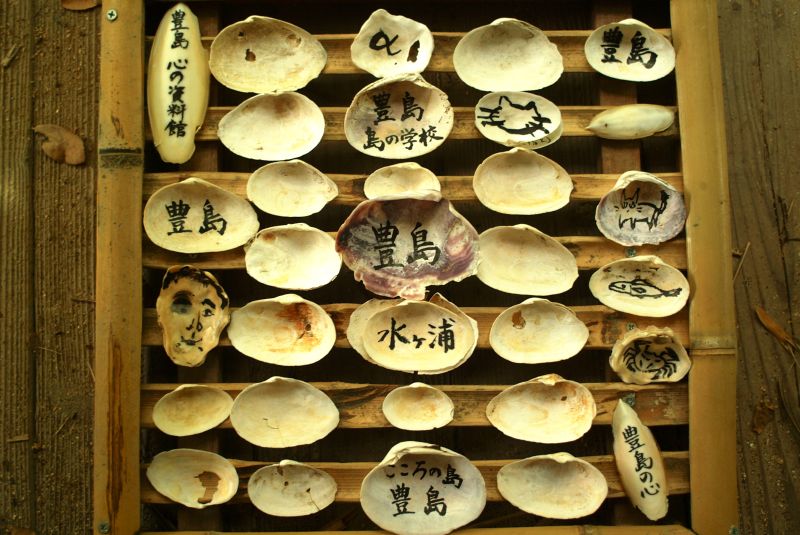 豊島 心の資料館
α
豊島
豊島
島の学校
豊島
豊島
水ヶ浦
こころの島
豊島
豊島の心